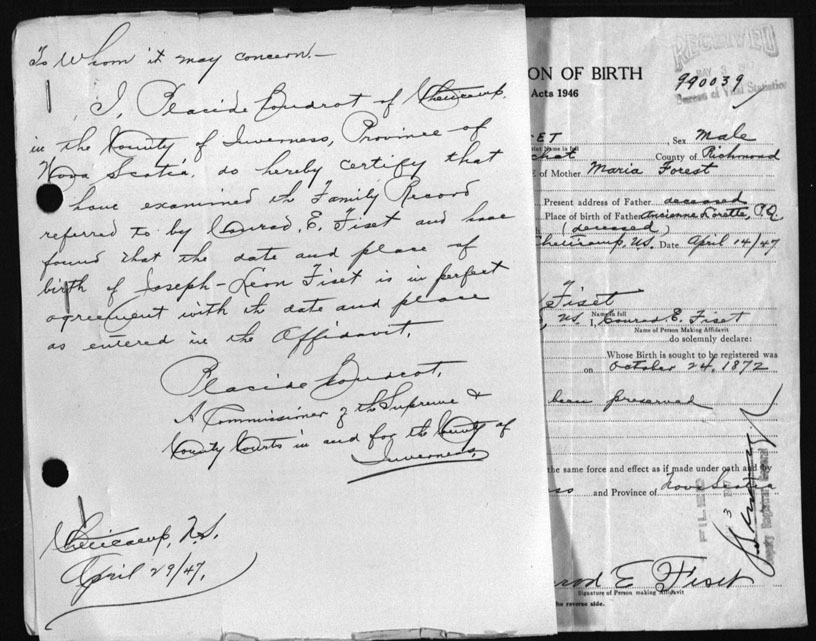 To Whom it may concern.—
I, Placide Boudrot of Cheticamp,
in the County of Inverness, Province of
Nova Scotia, do hereby certify that
I have examined the Family Record
referred to by Conrad. E. Fiset and have
found that the date and place of
birth of Joseph-Leon Fiset is in perfect
agreement with the date and place
as entered in the Affidavit.
Placide Boudrot,
A Commissioner of the Supreme &
County Courts in and for the County of
Inverness,
Cheticamp, N.S.
April 29/47.
RECEIVED
MAY 3 1947
Bureau of Vital Statistics
ON OF BIRTH
990039
Acts 1946
ET, Sex Male
Print Name in full
chat County of Richmond
E of Mother Maria Forest
Present address of Father deceased
Place of birth of Father Ancienne Lorette, P.Q.
(deceased)
Cheticamp, N.S. Date April 14/47
Fiset
Name in full
N.S. I, Conrad E. Fiset
Name of Person Making Affidavit
do solemnly declare:
Whose Birth is sought to be registered was
on October 24, 1872
been preserved
the same force and effect as if made under oath and by
ss and Province of Nova Scotia
FILED
3
Deputy Registrar General
rod E Fiset
Signature of Person making Affidavit
he reverse side.